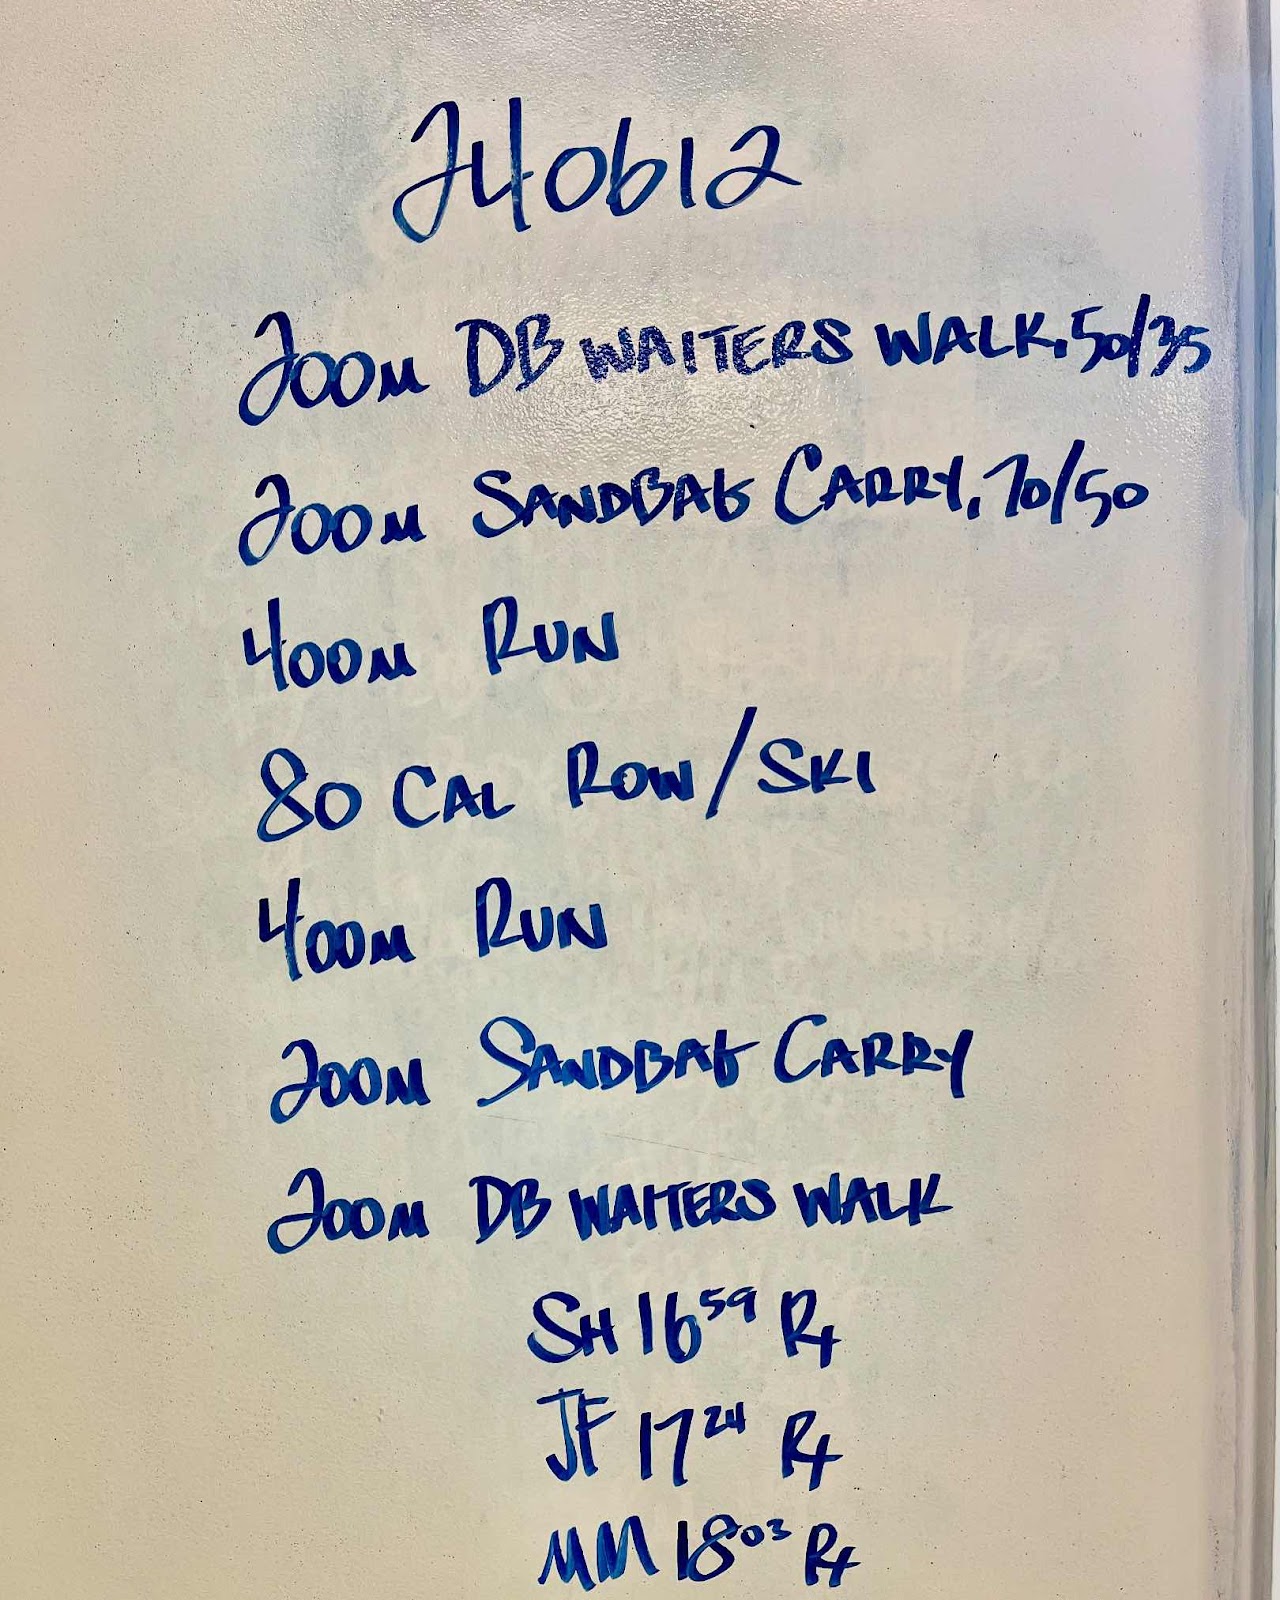 240612
200M DB WAITERS WALK, 50/35
200M SANDBAG CARRY, 70/50
400M RUN
80 CAL ROW/SKI
400M RUN
200M SANDBAG CARRY
200M DB WAITERS WALK
SH 16 59 Rx
JF 17 24 Rx
MM 18 03 Rx